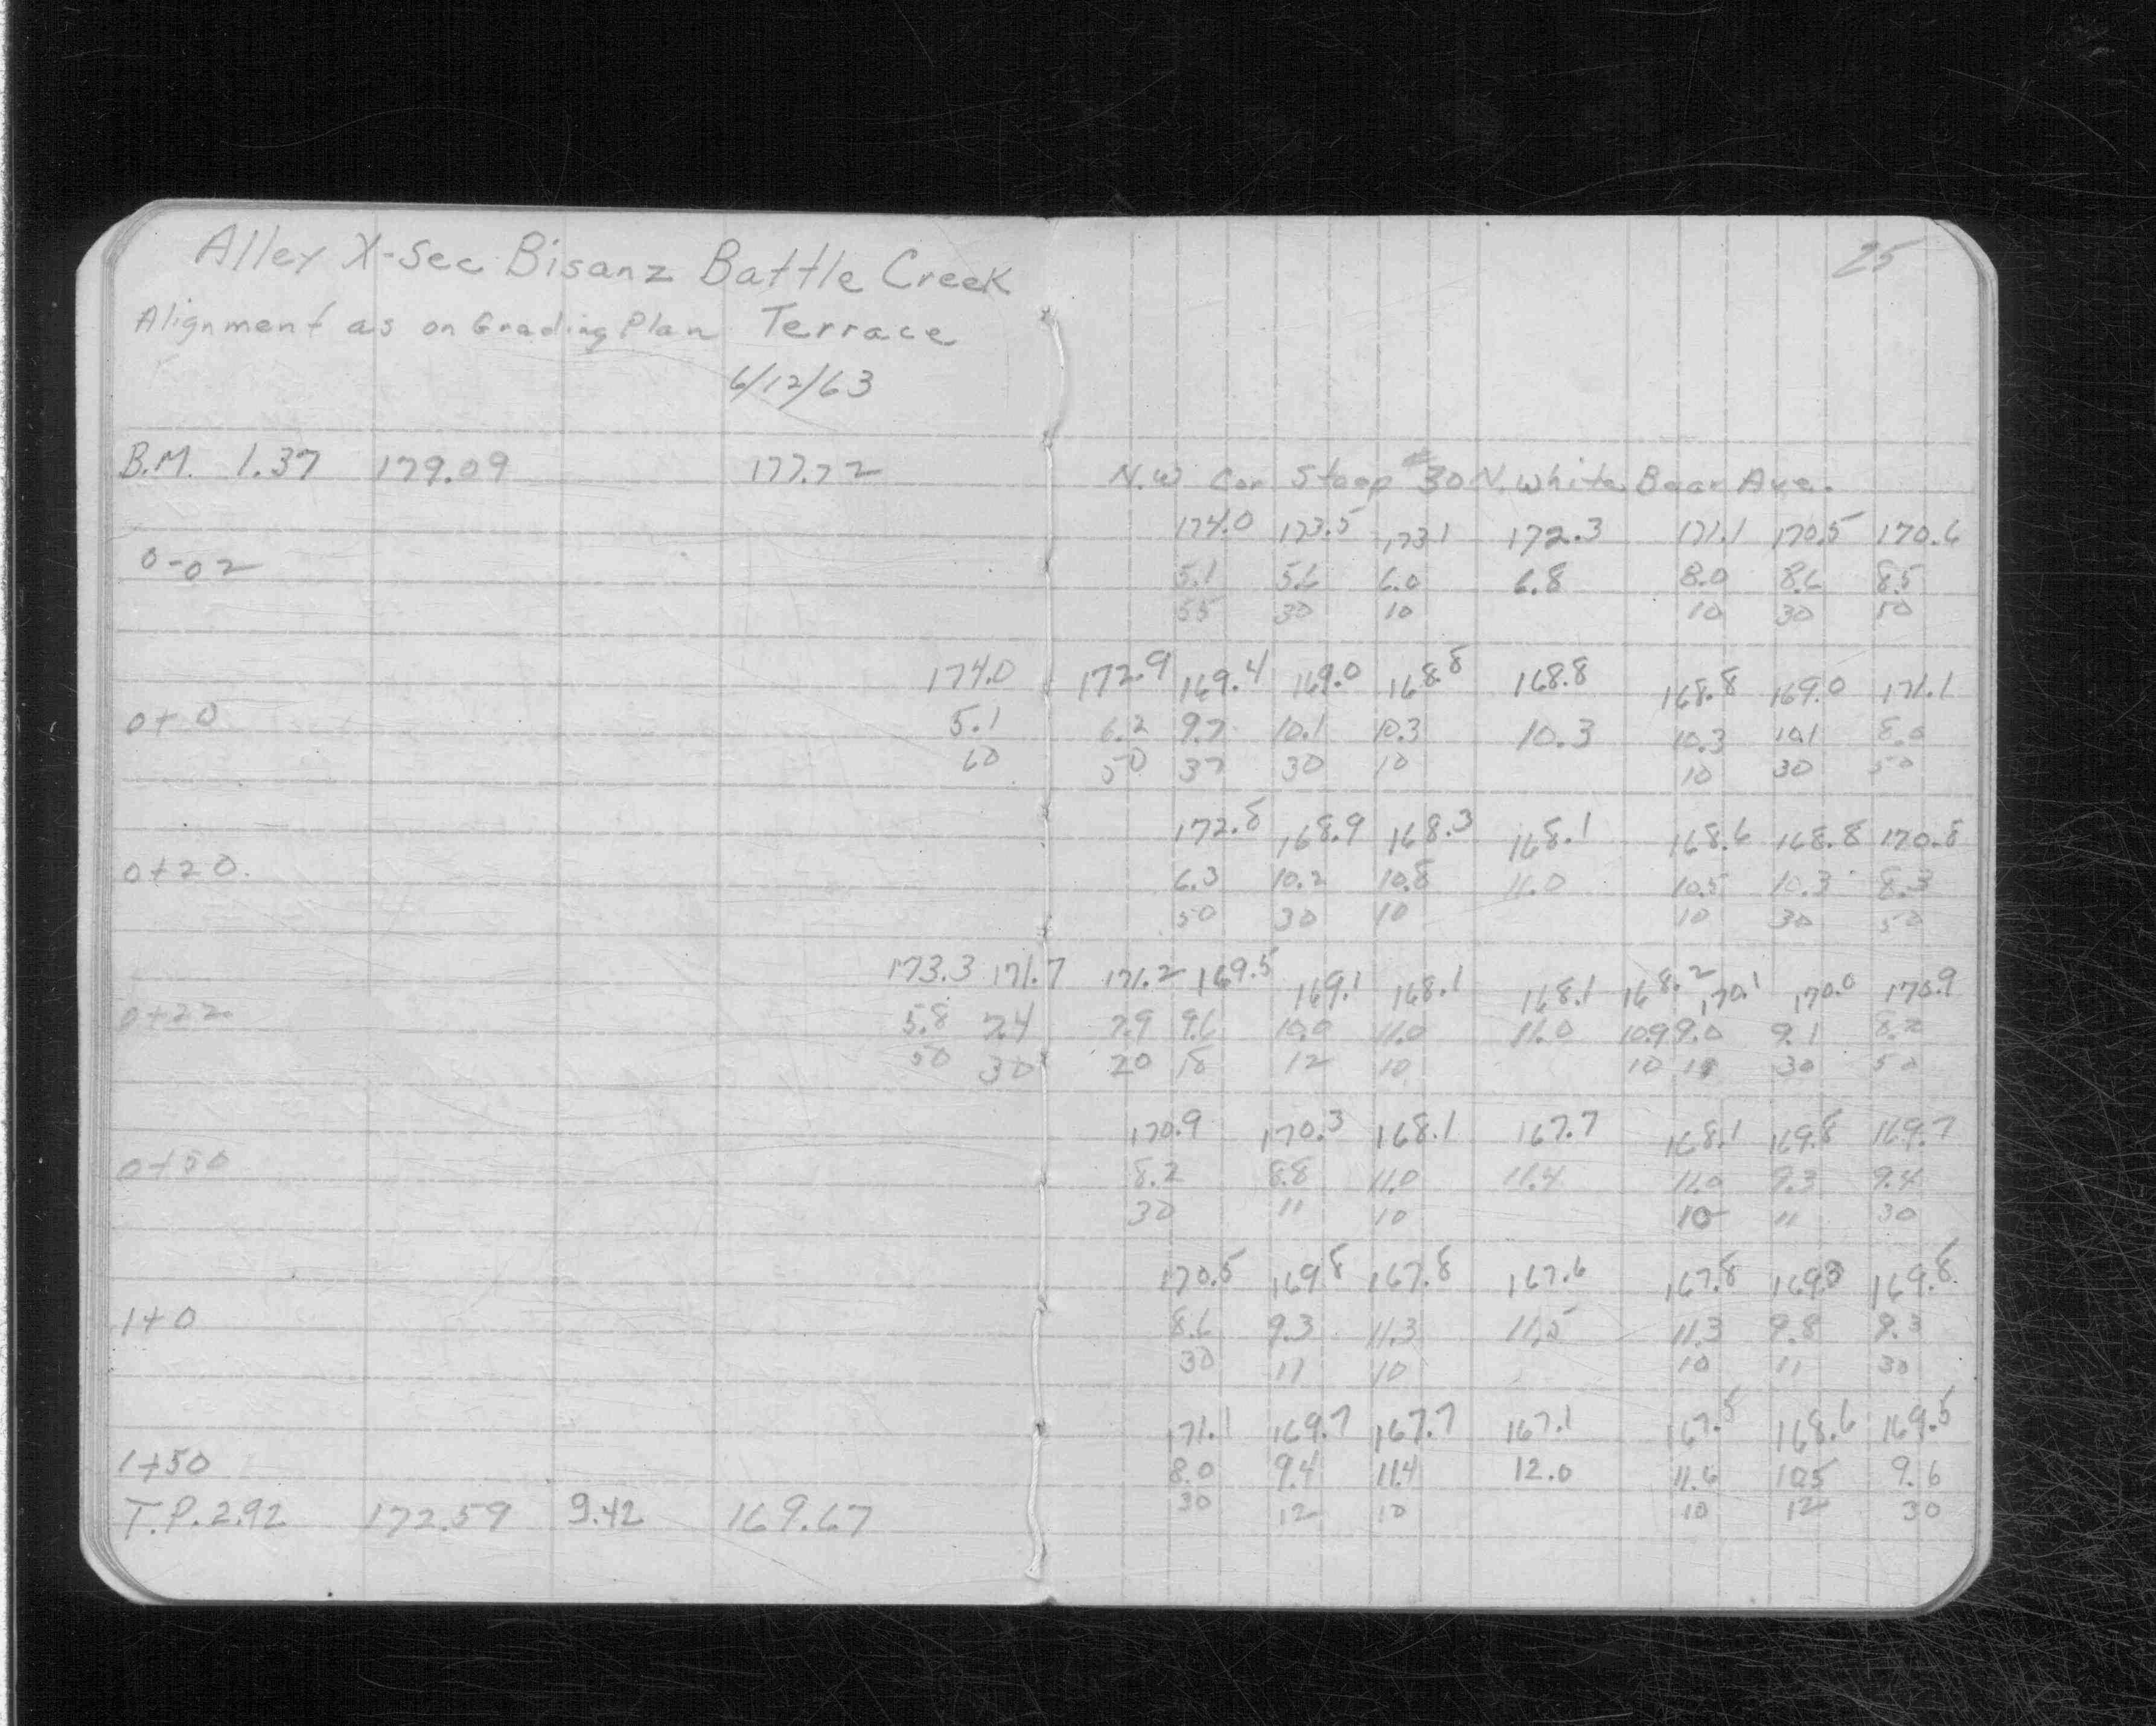 25
Alley X-Sec Bisanz Battle Creek
Alignment as on Grading Plan Terrace
6/12/63
B.M. 1.37 179.09 177.72 N.W Cor. Stoop #30 N. White Bear Ave.
174.0 173.5 173.1 172.3 171.1 170.5 170.6
0-02 5.1 5.6 6.0 6.8 8.0 8.6 8.5
55 30 10 10 30 50
174.0 172.9 169.4 169.0 168.8 168.8 168.8 169.0 171.1
0+0 5.1 6.2 9.7 10.1 10.3 10.3 10.3 10.1 8.0
60 50 37 30 10 10 30 50
172.8 168.9 168.3 168.1 168.6 168.8 170.8
0+20. 6.3 10.2 10.8 11.0 10.5 10.3 8.3
50 30 10 10 30 50
173.3 171.7 171.2 169.5 169.1 168.1 168.1 168.2 170.1 170.0 170.9
0+22 5.8 7.4 7.9 9.6 10.0 11.0 11.0 10.9 9.0 9.1 8.2
50 30 20 18 12 10 10 11 30 50
170.9 170.3 168.1 167.7 168.1 169.8 169.7
0+50 8.2 8.8 11.0 11.4 11.0 9.3 9.4
30 11 10 10 11 30
170.5 169.8 167.8 167.6 167.8 169.3 169.8
1+0 8.6 9.3 11.3 11.5 11.3 9.8 9.3
30 11 10 10 11 30
171.1 169.7 167.7 167.1 167.5 168.6 169.5
1+50 8.0 9.4 11.4 12.0 11.6 10.5 9.6
T.P. 2.92 172.59 9.42 169.67 30 12 10 10 12 30